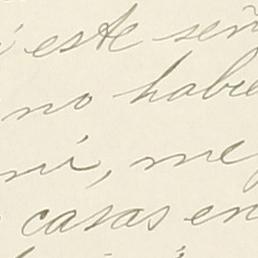 este señ
no habie
mi, me
casas en